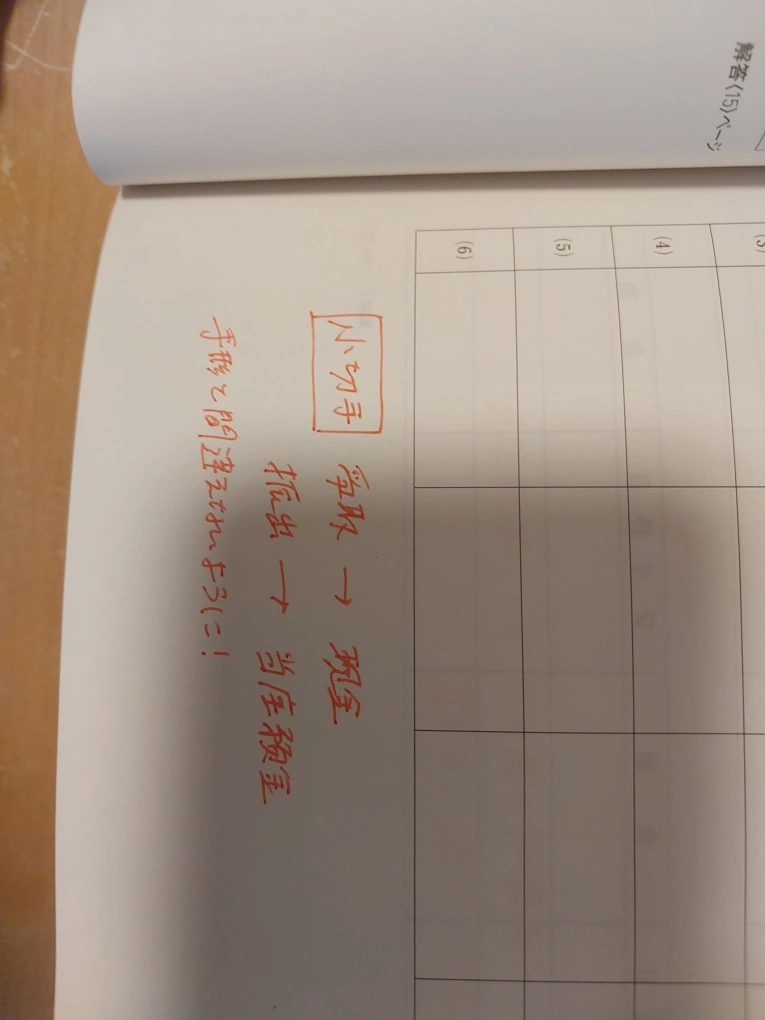 解答〈15〉ページ
(3)
(4)
(5)
(6)
小切手 受取 → 現金
振出 → 当座預金
手形と間違えないように!